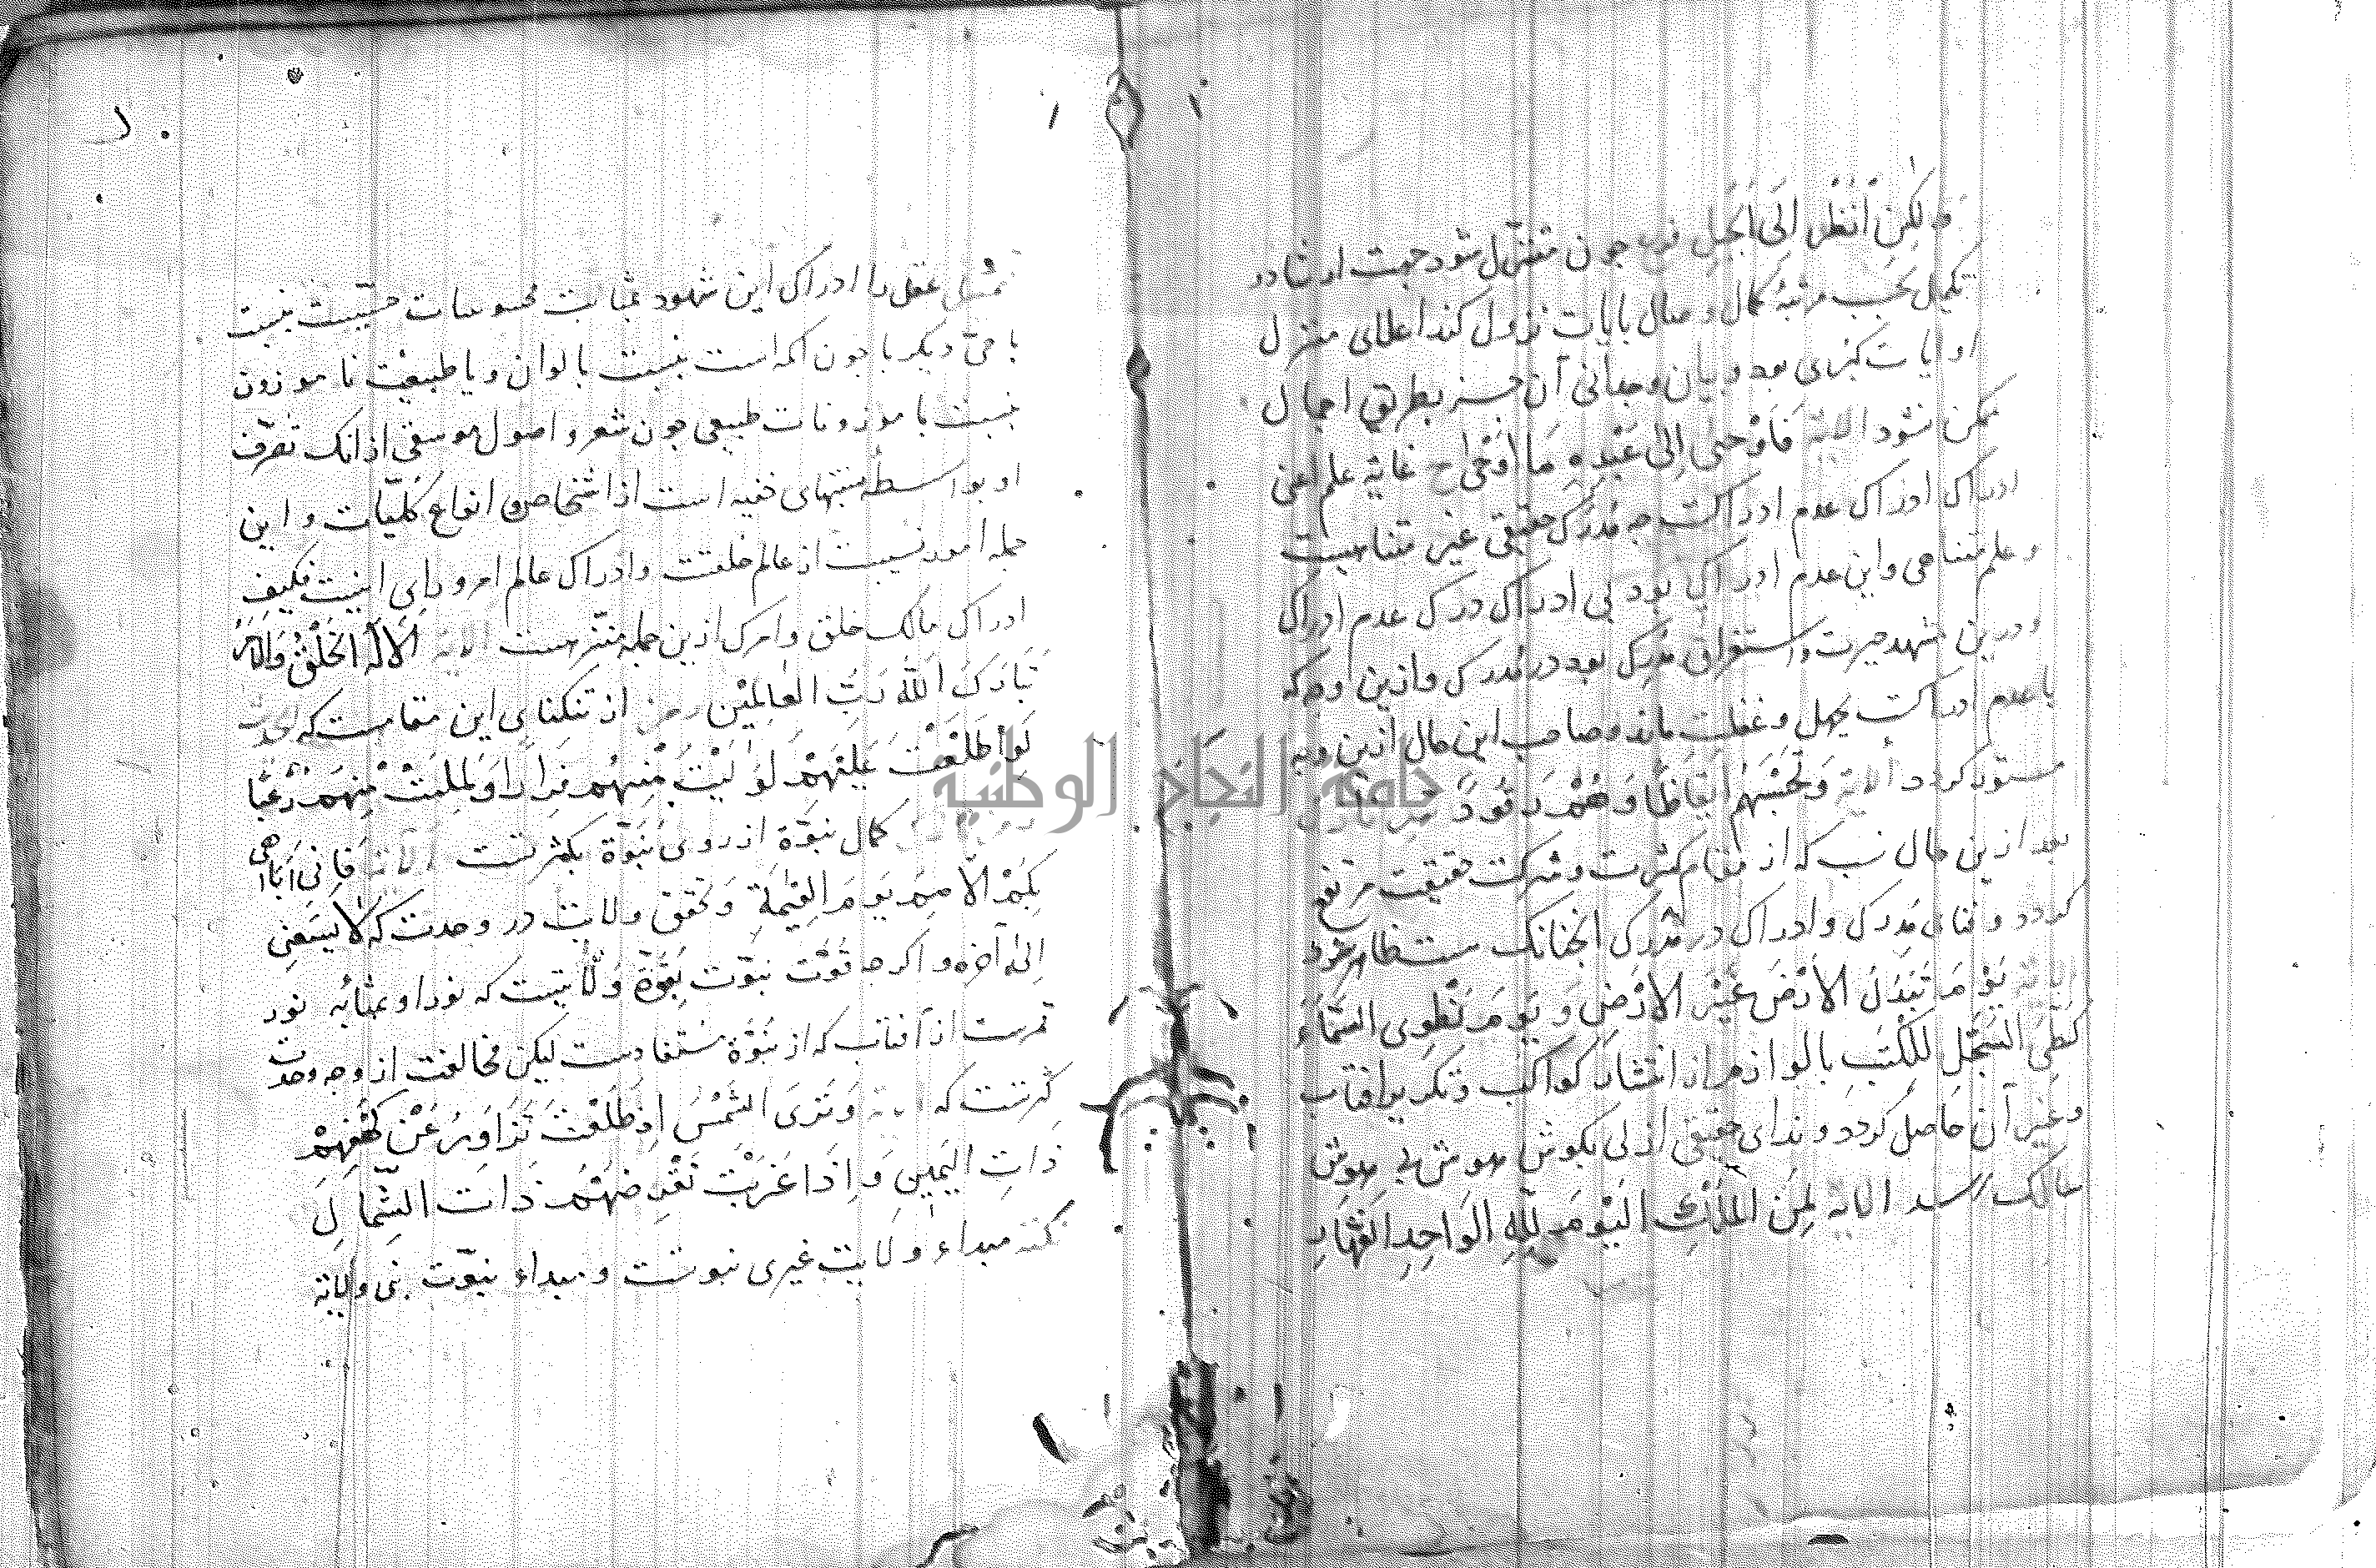 ولكِن اُنظُر اِلَى الجَبلِ چون متنزّل شود جهت ارشاد در
تكميل بحسب مرتبهٔ كمال و بايات نزول كند اعلاى منزل
او ايات كبرى بود و بيان وجدانى آن جز بطريق اجمال
ممكن نشود الاية فَاَوْحىٰ اِلىٰ عَبْدِهِ مَا اَوْحىٰ ح غاية علم اعنى
ادراك ادراك عدم ادراكست چه مُدرَك حقيقى غير متناهيست
و علم متناهى و اين عدم ادراك بود بى ادراك درك عدم ادراك
و درين مشهد حيرت و استغراق مُدرِك بود در مُدرَك و ازين وجه كه
با عدم ادراكست بجهل و غفلت ماند و صاحب اين حال ازين وجه
مستور كردد الاية وَتَحْسَبُهُم اَيقَاظًا وَهُمْ رُقُودٌ
بعد ازين حال نسب كه از مقام كثرت و شركت حقيقت مرتفع
كردد و فناى مُدرِك و ادراك در مُدرَك انچنانك مستظاهر شود
الاية يَوْمَ تُبَدَّلُ الأرْضُ غَيْرَ الأرْضِ وَ يَوْمَ نَطْوِى السَّمَاءَ
كَطَىِّ السِّجِلِّ لِلكُتُبِ بالوازم از انتشار كواكب و تكوير افتاب
و غير آن حاصل كردد و نداى حقيقى ازلى بكوش هوش بى هوش
سالك رسد الاية لِمَنِ المُلْكُ اليَوْمَ لِلّٰهِ الوَاحِدِ القَهَّارِ
عقل را ادراك اين شهود بمثابت محسوسات حسّيست بنسبت
با حسّ ديكر يا چون اكمه است بنسبت بالوان و يا طبيعت نا موزون
بنسبت با موزونات طبيعى چون شعر و اصول موسيقى از انك تصرّف
او بواسطه منتهاى خفيه است از اشخاص و انواع كلّيات و اين
جمله امور نسبيست از عالم خلقت و ادراك عالم امر وراى اينست فكيف
ادراك مالك خلق و امر كه ازين جمله منزهست الاية اَلاَ لَهُ الخَلْقُ وَالاَمْرُ
تَبَارَكَ اللّٰهُ رَبُّ العَالَمِيْنَ رمز از تنكناى اين مقامست كه
لَوِ اطَّلَعْتَ عَلَيْهِمْ لَوَلَّيْتَ مِنْهُمْ فِرَارًا وَلَمُلِئْتَ مِنْهُمْ رُعْبًا
كمال نبوّة از روى نبوّة بكثرتست الاية فَاِنِّى اُبَاهِى
بِكُمُ الاُمَمَ يَومَ القِيٰمَةِ وَ تحقق ولايت در وحدت كه لاَ يَسَعُنِى
اِلىٰ آخره و اكرچه قُوّت نبوّت بقوّة ولايتيست كه نور او بمثابه نور
قمرست از آفتاب كه از نبوّة مستفادست ليكن مخالفت از وجه وحدت
كثرتست كه وَتَرَى الشَّمْسَ اِذَا طَلَعَتْ تَزَاوَرُ عَنْ كَهْفِهِمْ
ذَاتِ اليَمِينِ وَ اِذَا غَرَبَتْ تَقْرِضُهُمْ ذَاتَ الشِّمَالِ
نكته مبداء ولايت غيرى نبوتست و مبداء نبوّت نبى ولاية
جامعة النجاح الوطنية